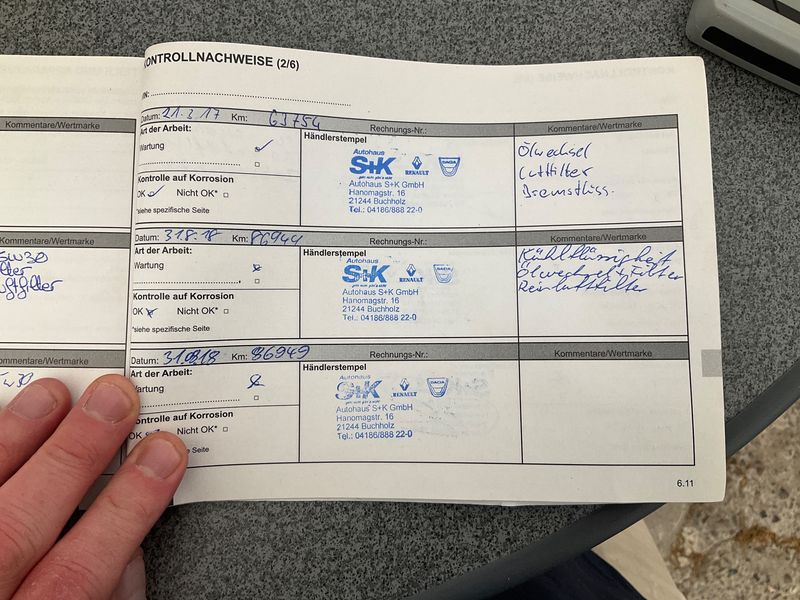 KONTROLLNACHWEISE (2/6)
Kommentare/Wertmarke
Datum: 21.3.17 Km: 63754 Rechnungs-Nr.: Kommentare/Wertmarke
Art der Arbeit:
Wartung
Kontrolle auf Korrosion
OK Nicht OK*
*siehe spezifische Seite
Händlerstempel
Autohaus
S+K RENAULT DACIA
Autohaus S+K GmbH
Hanomagstr. 16
21244 Buchholz
Tel.: 04186/888 22-0
Ölwechsel
Luftfilter
Bremsflüss.
Kommentare/Wertmarke
5W30
Datum: 31.8.18 Km: 86944 Rechnungs-Nr.: Kommentare/Wertmarke
Art der Arbeit:
Wartung
Kontrolle auf Korrosion
OK Nicht OK*
*siehe spezifische Seite
Händlerstempel
Autohaus
S+K RENAULT DACIA
Autohaus S+K GmbH
Hanomagstr. 16
21244 Buchholz
Tel.: 04186/888 22-0
Kühlflüssigkeit
Ölwechsel + Filter
Reinluftfilter
Kommentare/Wertmarke
Datum: 310818 Km: 86949 Rechnungs-Nr.: Kommentare/Wertmarke
Art der Arbeit:
Wartung
Kontrolle auf Korrosion
OK Nicht OK*
siehe spezifische Seite
Händlerstempel
Autohaus
S+K RENAULT DACIA
Autohaus S+K GmbH
Hanomagstr. 16
21244 Buchholz
Tel.: 04186/888 22-0
6.11